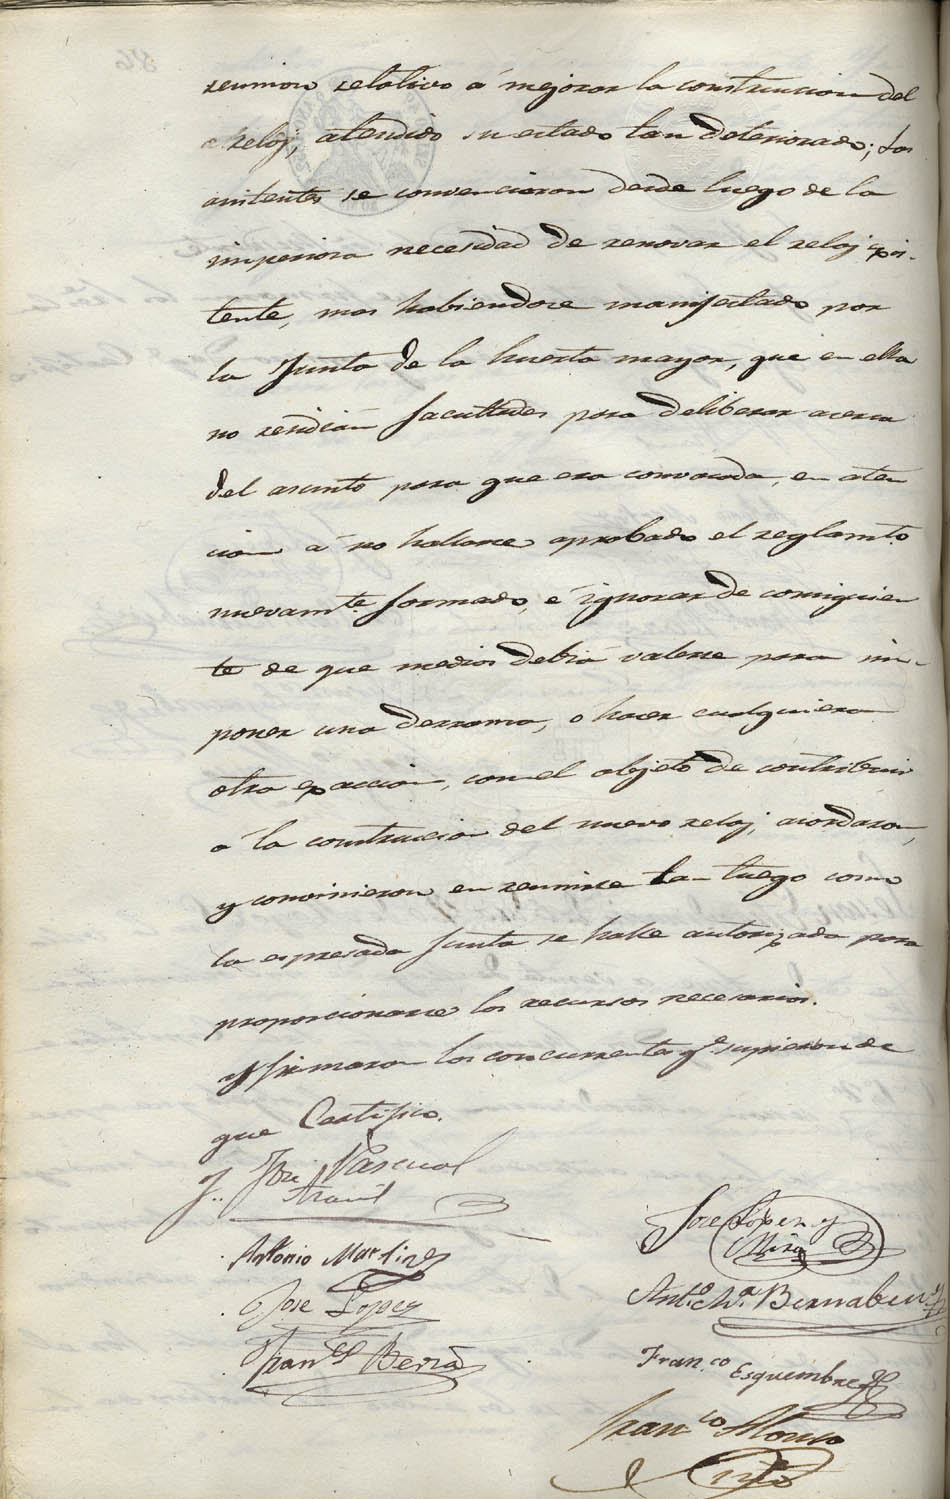 reunion relativo á mejorar la construccion del
reloj, atendido su estado tan deteriorado; los
asistentes se convencieron desde luego de la
imperiosa necesidad de renovar el reloj exis-
tente, mas habiendose manifestado por
la Junta de la huerta mayor, que en ella
no rendián facultades para deliberar acerca
del asunto para que era convocada, en aten
cion á no hallarse aprobado el reglamto.
nuevamte. formado, é ignorar de consiguien
te de que medios debia valerse para im-
poner una derrama, o hacer cualquiera
otra exaccion, con el objeto de contribuir
a la construcion del nuevo reloj; acordaron,
y convinieron en reunirse tan luego como
la espresada Junta se halle autorizada para
proporcionarse los recursos necesarios.
y firmaron los concurrentes qe. supieron de
que Certifico.
J. José Pascual
José Lopez y
Antonio Martinez
Anto. Ma. Bernabeu
Jose Lopez
Franco. Esquembre
Franco Alonso